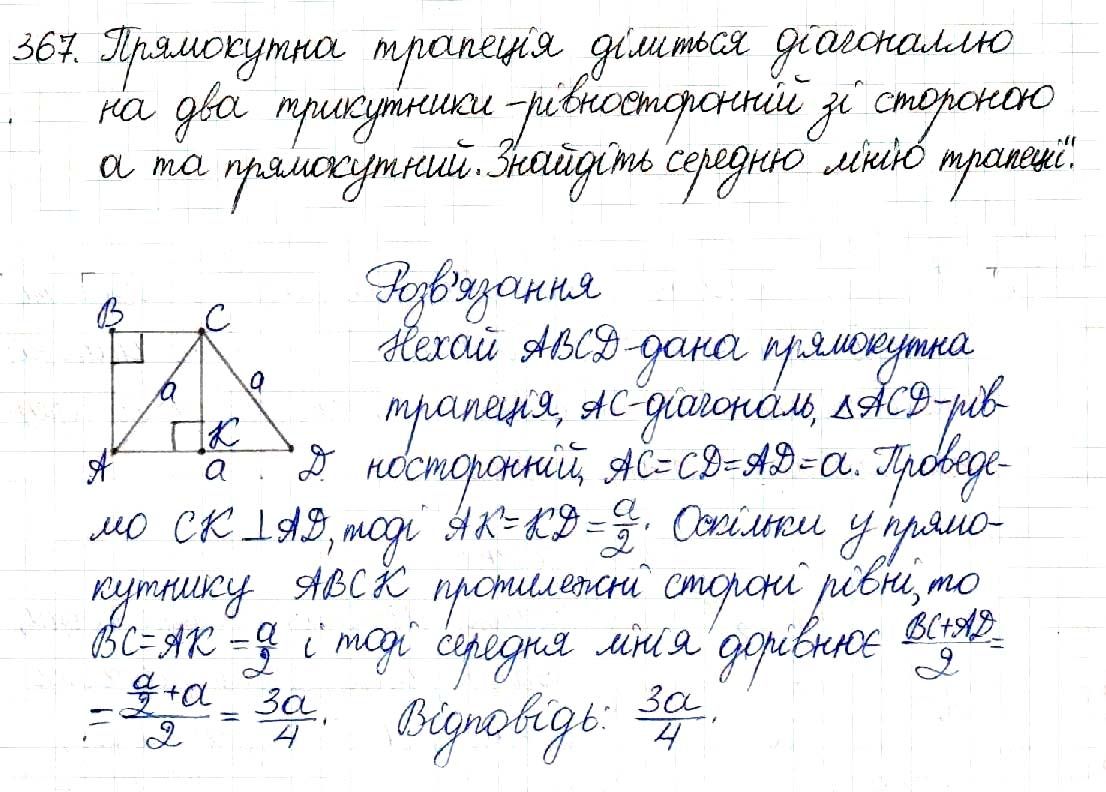 367. Прямокутна трапеція ділиться діагоналлю
на два трикутники - рівносторонній зі стороною
а та прямокутний. Знайдіть середню лінію трапеції.
Розв'язання
B C
Нехай ABCD - дана прямокутна
a a
трапеція, AC - діагональ, △ACD - рів-
K
A a D
носторонній, AC=CD=AD=a. Проведе-
мо CK⊥AD, тоді AK=KD=a/2. Оскільки у прямо-
кутнику ABCK протилежні сторони рівні, то
BC=AK=a/2 і тоді середня лінія дорівнює (BC+AD)/2=
=(a/2+a)/2=3a/4. Відповідь: 3a/4.